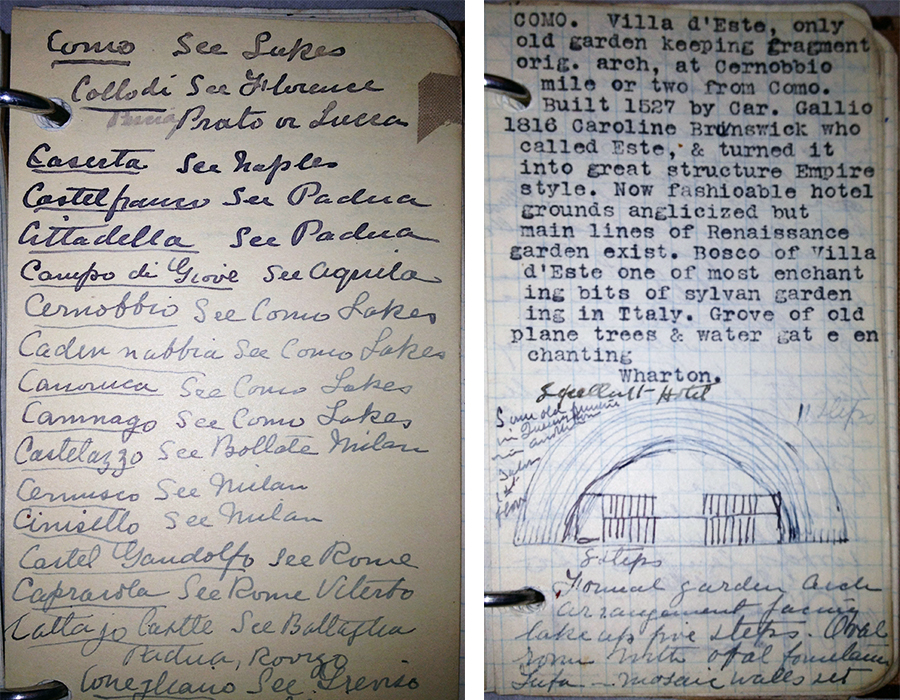 Como See Lakes
Collodi See Florence
Prato or Lucca
Caserta See Naples
Castelfranco See Padua
Cittadella See Padua
Campo di Giove See Aquila
Cernobbio See Como Lakes
Cadennabbia See Como Lakes
See Como Lakes
Camnago See Como Lakes
Castelazzo See Bollate Milan
Cernusco See Milan
Cinisello See Milan
Castel Gandolfo See Rome
Caprarola See Rome Viterbo
Cattajo Castle See Battaglia
Padua, Rovigo
Conegliano See Treviso
COMO. Villa d'Este, only
old garden keeping gragment
orig. arch, at Cernobbio
mile or two from Como.
Built 1527 by Car. Gallio
1816 Caroline Brunswick who
called Este, & turned it
into great structure Empire
style. Now fashioable hotel
grounds anglicized but
main lines of Renaissance
garden exist. Bosco of Villa
d'Este one of most enchant
ing bits of sylvan garden
ing in Italy. Grove of old
plane trees & water gat e en
chanting
Wharton.
Excellent Hotel
11 steps
steps
Formal garden arch
arrangement facing
lake up five steps. Oval
room with oval
Tufa mosaic walls set